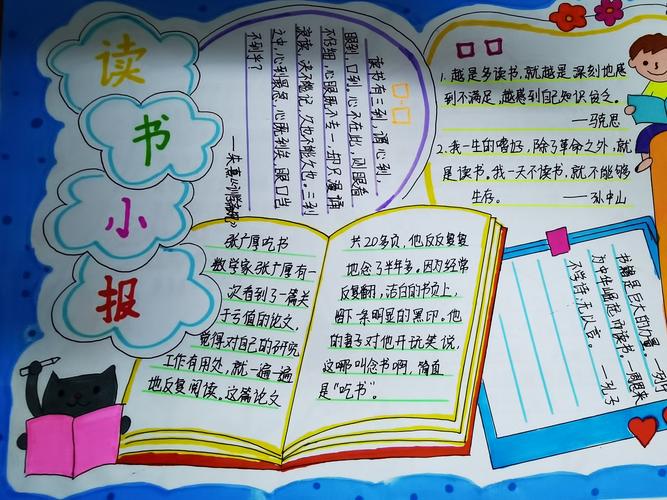 读
书
小
报
读书有三到,谓心到,
眼到,口到。心不在此,则眼看
不仔细,心眼既不专一,却只漫诵
浪读,决不能记,久也不能久也。三到
之中,心到最急。心既到矣,眼口岂
不到乎?
——朱熹《训学斋规》
1. 越是多读书,就越是深刻地感
到不满足,越感到自己知识贫乏。
——马克思
2. 我一生的嗜好,除了革命之外,就
是读书。我一天不读书,就不能够
生存。 ——孙中山
张广厚吃书
数学家张广厚有一
次看到了一篇关
于亏值的论文,
觉得对自己的研究
工作有用处,就一遍一遍
地反复阅读。这篇论文
共20多页,他反反复复
地念了半年多。因为经常
反复翻,洁白的书页上,
留下一条明显的黑印。他
的妻子对他开玩笑说,
这哪叫念书啊,简直
是“吃书”。
书籍是巨大的力量。——列宁
为中华崛起而读书。——周恩来
不学诗,无以言。——孔子